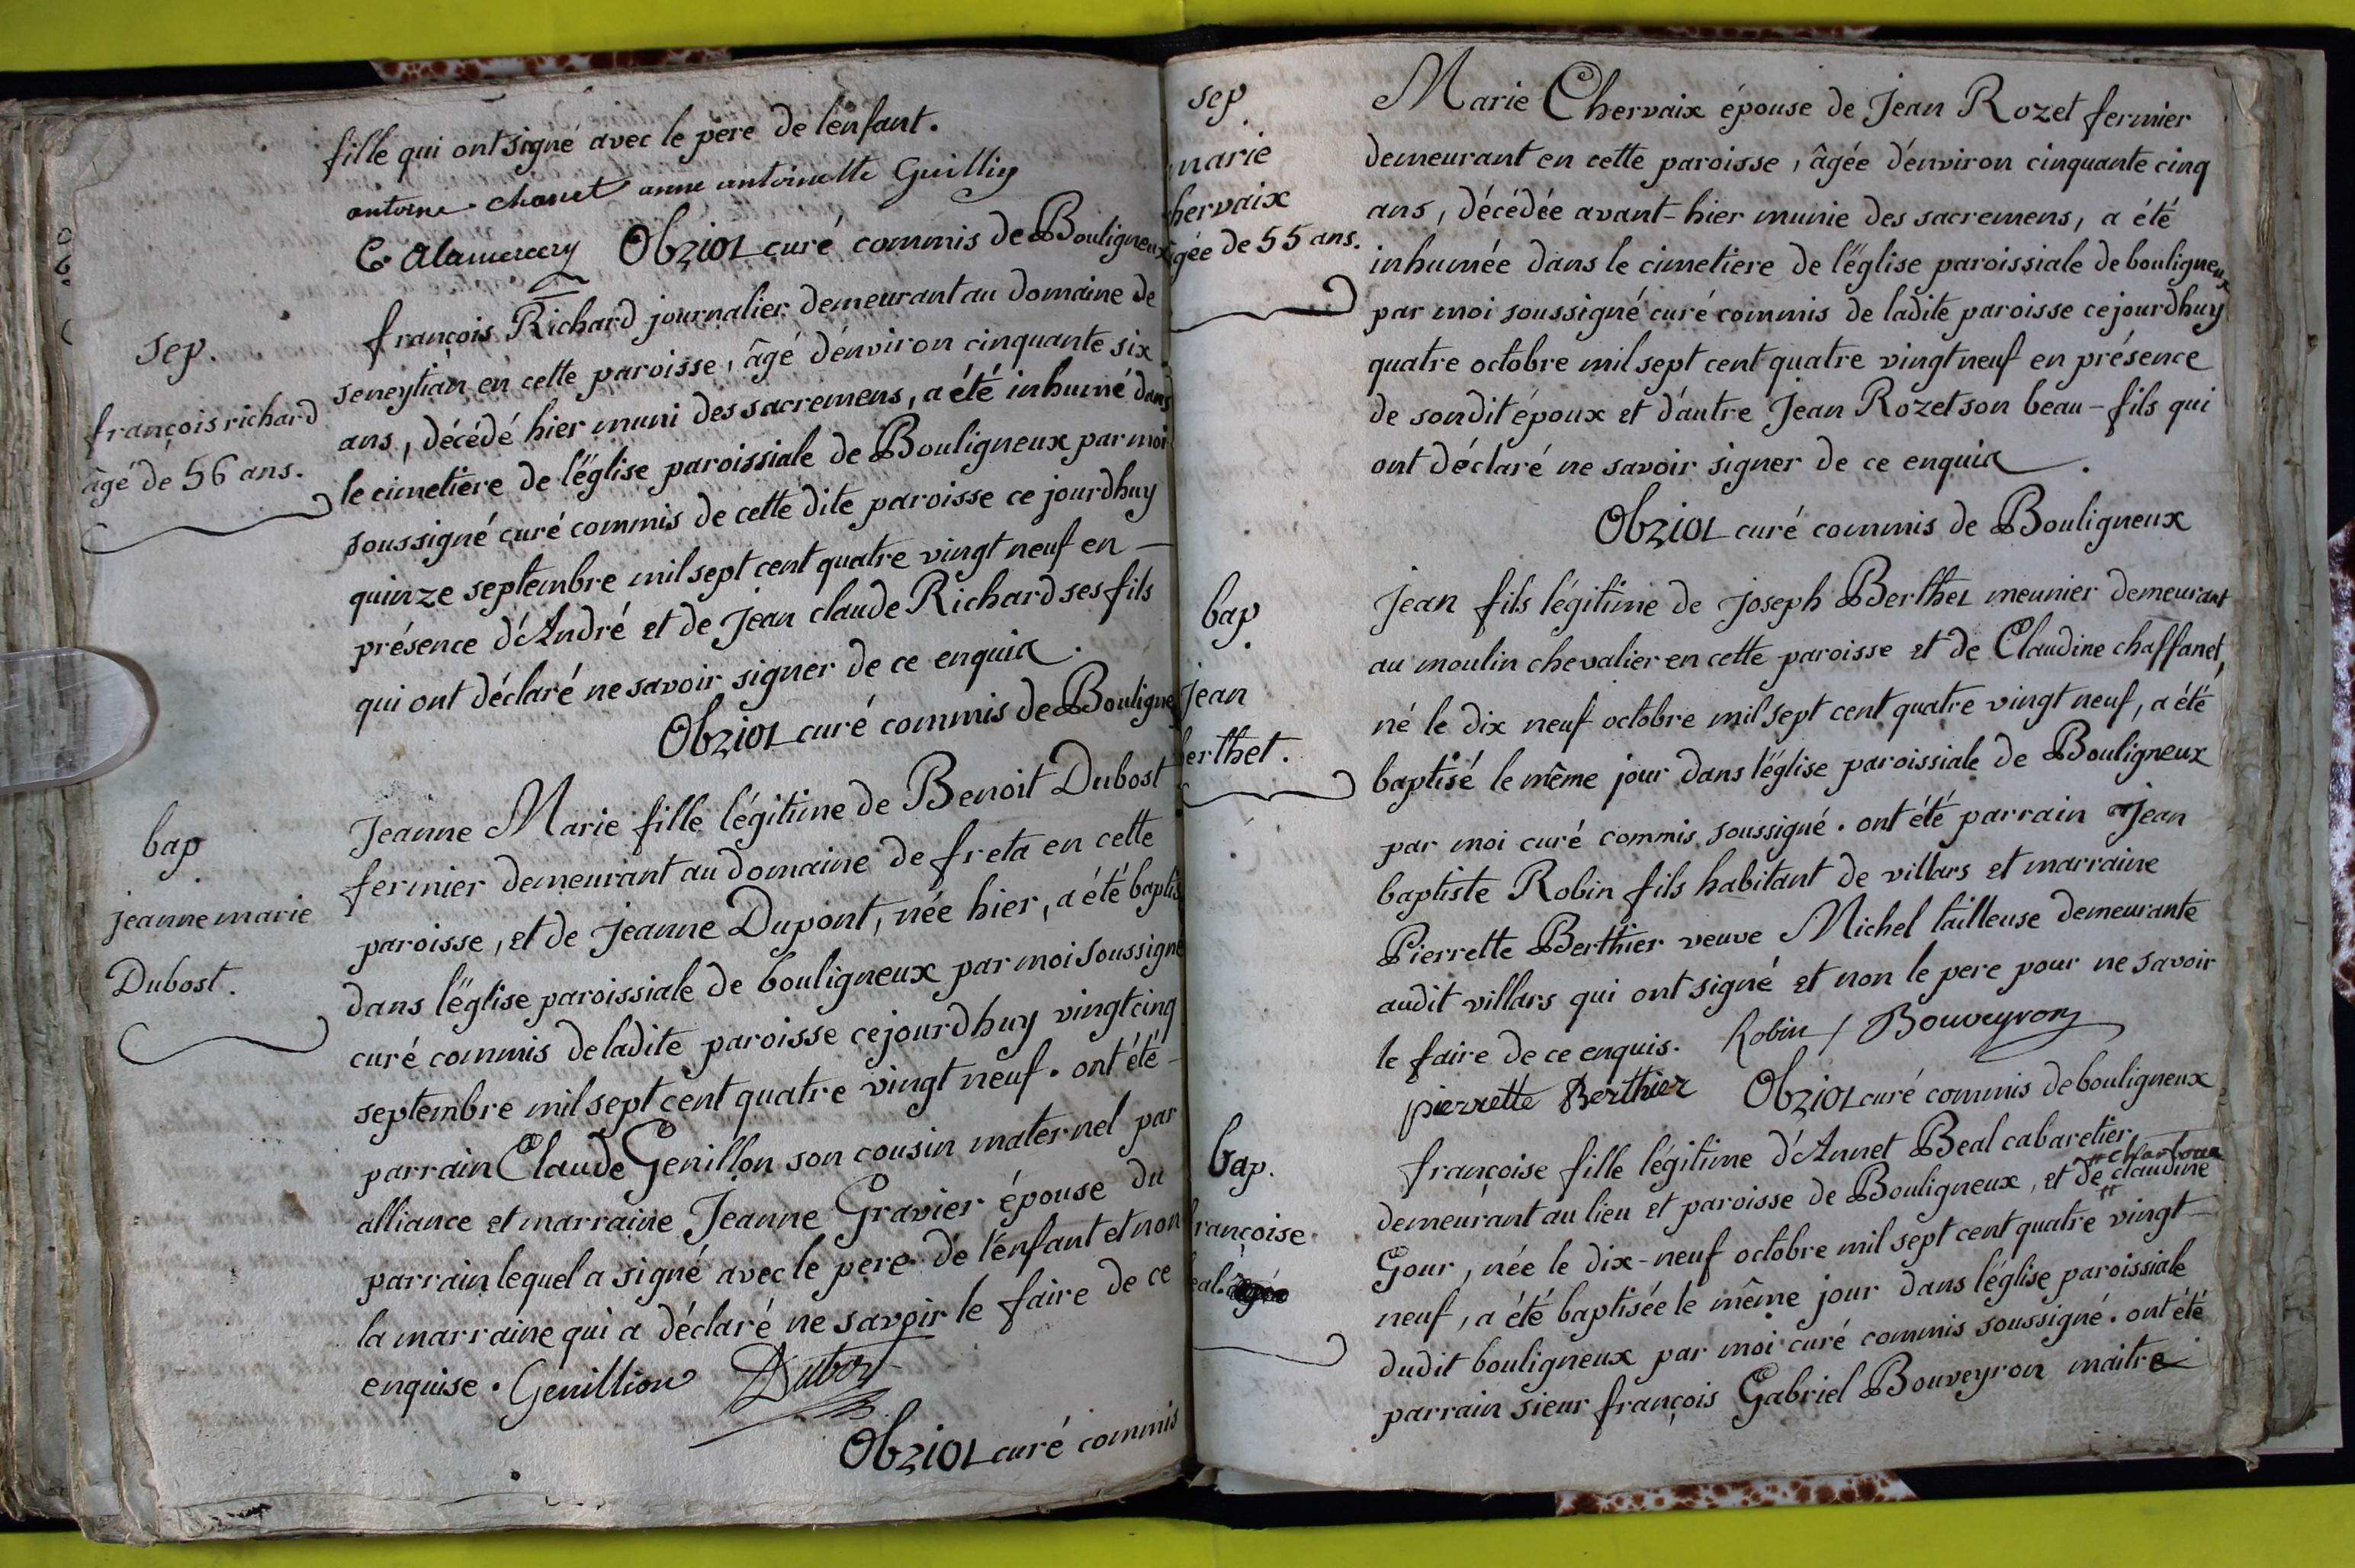 fille qui ont signé avec le pere de l'enfant.
antoine chanet anne antoinette Guillin
C. Alamercery Obriot curé commis de Bouligneux
sep.
françois richard
âgé de 56 ans.
françois Richard journalier demeurant au domaine de
en cette paroisse, âgé d'environ cinquante six
ans, décédé hier muni des sacremens, a été inhumé dans
le cimetiere de l'église paroissiale de Bouligneux par moi
soussigné curé commis de cette dite paroisse ce jourdhuy
quinze septembre mil sept cent quatre vingt neuf en
présence d'André et de Jean claude Richard ses fils
qui ont déclaré ne savoir signer de ce enquis.
Obriot curé commis de Bouligne
bap.
jeanne marie
Dubost.
Jeanne Marie fille légitime de Benoit Dubost
fermier demeurant au domaine de freta en cette
paroisse, et de Jeanne Dupont, née hier, a été baptis
dans l'église paroissiale de bouligneux par moi soussigné
curé commis de ladite paroisse cejourdhuy vingt cinq
septembre mil sept cent quatre vingt neuf. ont été
parrain Claude Genillon son cousin maternel par
alliance et marraine Jeanne Gravier épouse du
parrain lequel a signé avec le pere de l'enfant et non
la marraine qui a déclaré ne savoir le faire de ce
enquise. Genillion Dubost
Obriot curé commis
sep.
marie
hervaix
gée de 55 ans.
Marie Chervaix épouse de Jean Rozet fermier
demeurant en cette paroisse, âgée d'environ cinquante cinq
ans, décédée avant-hier munie des sacremens, a été
inhumée dans le cimetiere de l'église paroissiale de bouligneux
par moi soussigné curé commis de ladite paroisse cejourdhuy
quatre octobre mil sept cent quatre vingt neuf en présence
de sondit époux et d'autre Jean Rozet son beau-fils qui
ont déclaré ne savoir signer de ce enquis.
Obriot curé commis de Bouligneux
bap.
Jean
erthet.
Jean fils légitime de Joseph Berthet meunier demeurant
au moulin chevalier en cette paroisse et de Claudine chaffanet,
né le dix neuf octobre mil sept cent quatre vingt neuf, a été
baptisé le même jour dans l'église paroissiale de Bouligneux
par moi curé commis soussigné. ont été parrain Jean
baptiste Robin fils habitant de villars et marraine
Pierrette Berthier veuve Michel tailleuse demeurante
audit villars qui ont signé et non le pere pour ne savoir
le faire de ce enquis. Robin / Bouveyron
pierrette Berthier Obriot curé commis de bouligneux
bap.
rançoise
eal.
françoise fille légitime d'Annet Beal cabaretier
demeurant au lieu et paroisse de Bouligneux, et de claudine
Gour, née le dix-neuf octobre mil sept cent quatre vingt
neuf, a été baptisée le même jour dans l'église paroissiale
dudit bouligneux par moi curé commis soussigné. ont été
parrain sieur françois Gabriel Bouveyron maitre